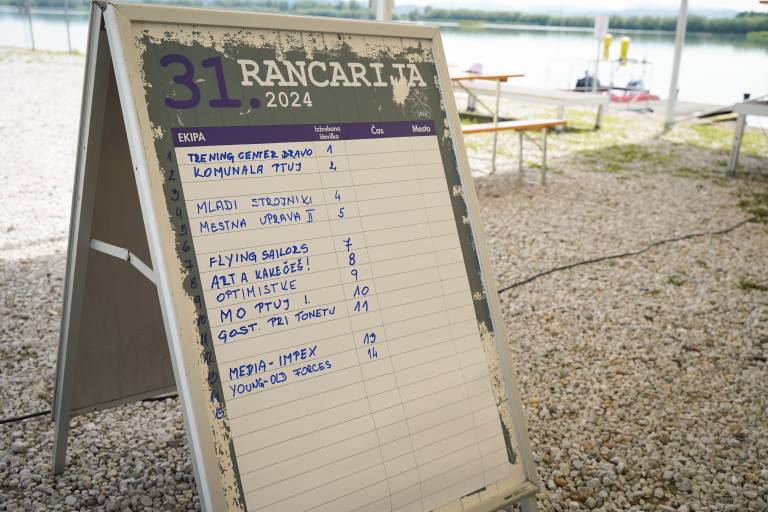 31. RANCARIJA
2024
EKIPA Izžrebana številka Čas Mesto
1 TRENING CENTER DRAVO 1
2 KOMUNALA PTUJ 2
3
4 MLADI STROJNIKI 4
5 MESTNA UPRAVA II 5
6
7 FLYING SAILORS 7
8 ART A KAKEČEŠ! 8
9 OPTIMISTKE 9
10 MO PTUJ 1. 10
11 GOST. PRI TONETU 11
12
13 MEDIA-IMPEX 13
14 YOUNG-OLD FORCES 14
15